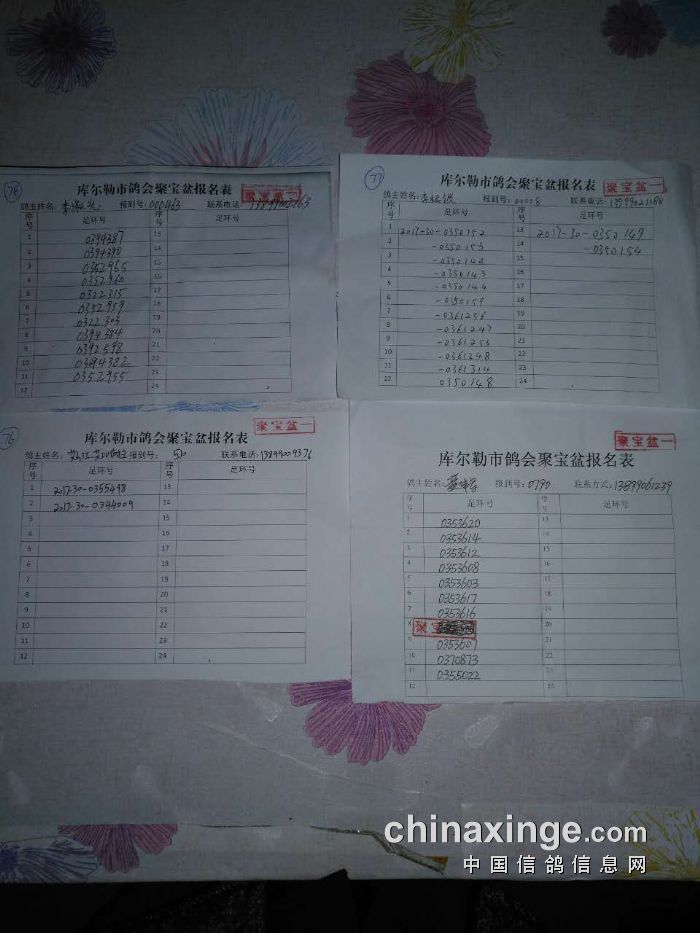 78
库尔勒市鸽会聚宝盆报名表
鸽主姓名: 报到号:000463 联系电话:
序号 足环号 序号 足环号
1 0394387 13
2 0394390 14
3 0352965 15
4 0352960 16
5 0322315 17
6 0352959 18
7 0322303 19
8 0394384 20
9 0392598 21
10 0394382 22
11 0352955 23
12 24
77
库尔勒市鸽会聚宝盆报名表
聚宝盆一
鸽主姓名: 报到号: 联系电话:
序号 足环号 序号 足环号
1 2017-30-0350152 13 2017-30-0350149
2 -0350153 14 -0350154
3 -0350142 15
4 -0350143 16
5 -0350144 17
6 -0350159 18
7 -0361256 19
8 -0361247 20
9 -0361253 21
10 -0361248 22
11 -0361314 23
12 0350148 24
76
库尔勒市鸽会聚宝盆报名表
聚宝盆一
鸽主姓名: 报到号: 510 联系电话:13899009376
序号 足环号 序号 足环号
1 2017-30-0355498 13
2 2017-30-0344009 14
3 15
4 16
5 17
6 18
7 19
8 20
9 21
10 22
11 23
12 24
聚宝盆一
库尔勒市鸽会聚宝盆报名表
鸽主姓名: 报到号:0790 联系方式:13899061239
序号 足环号 序号 足环号
1 0353620 13
2 0353614 14
3 0353612 15
4 0353608 16
5 0353603 17
6 0353617 18
7 0353616 19
8 聚宝 20
9 0353601 21
10 0370873 22
11 0355022
12
chinaxinge.com
中国信鸽信息网